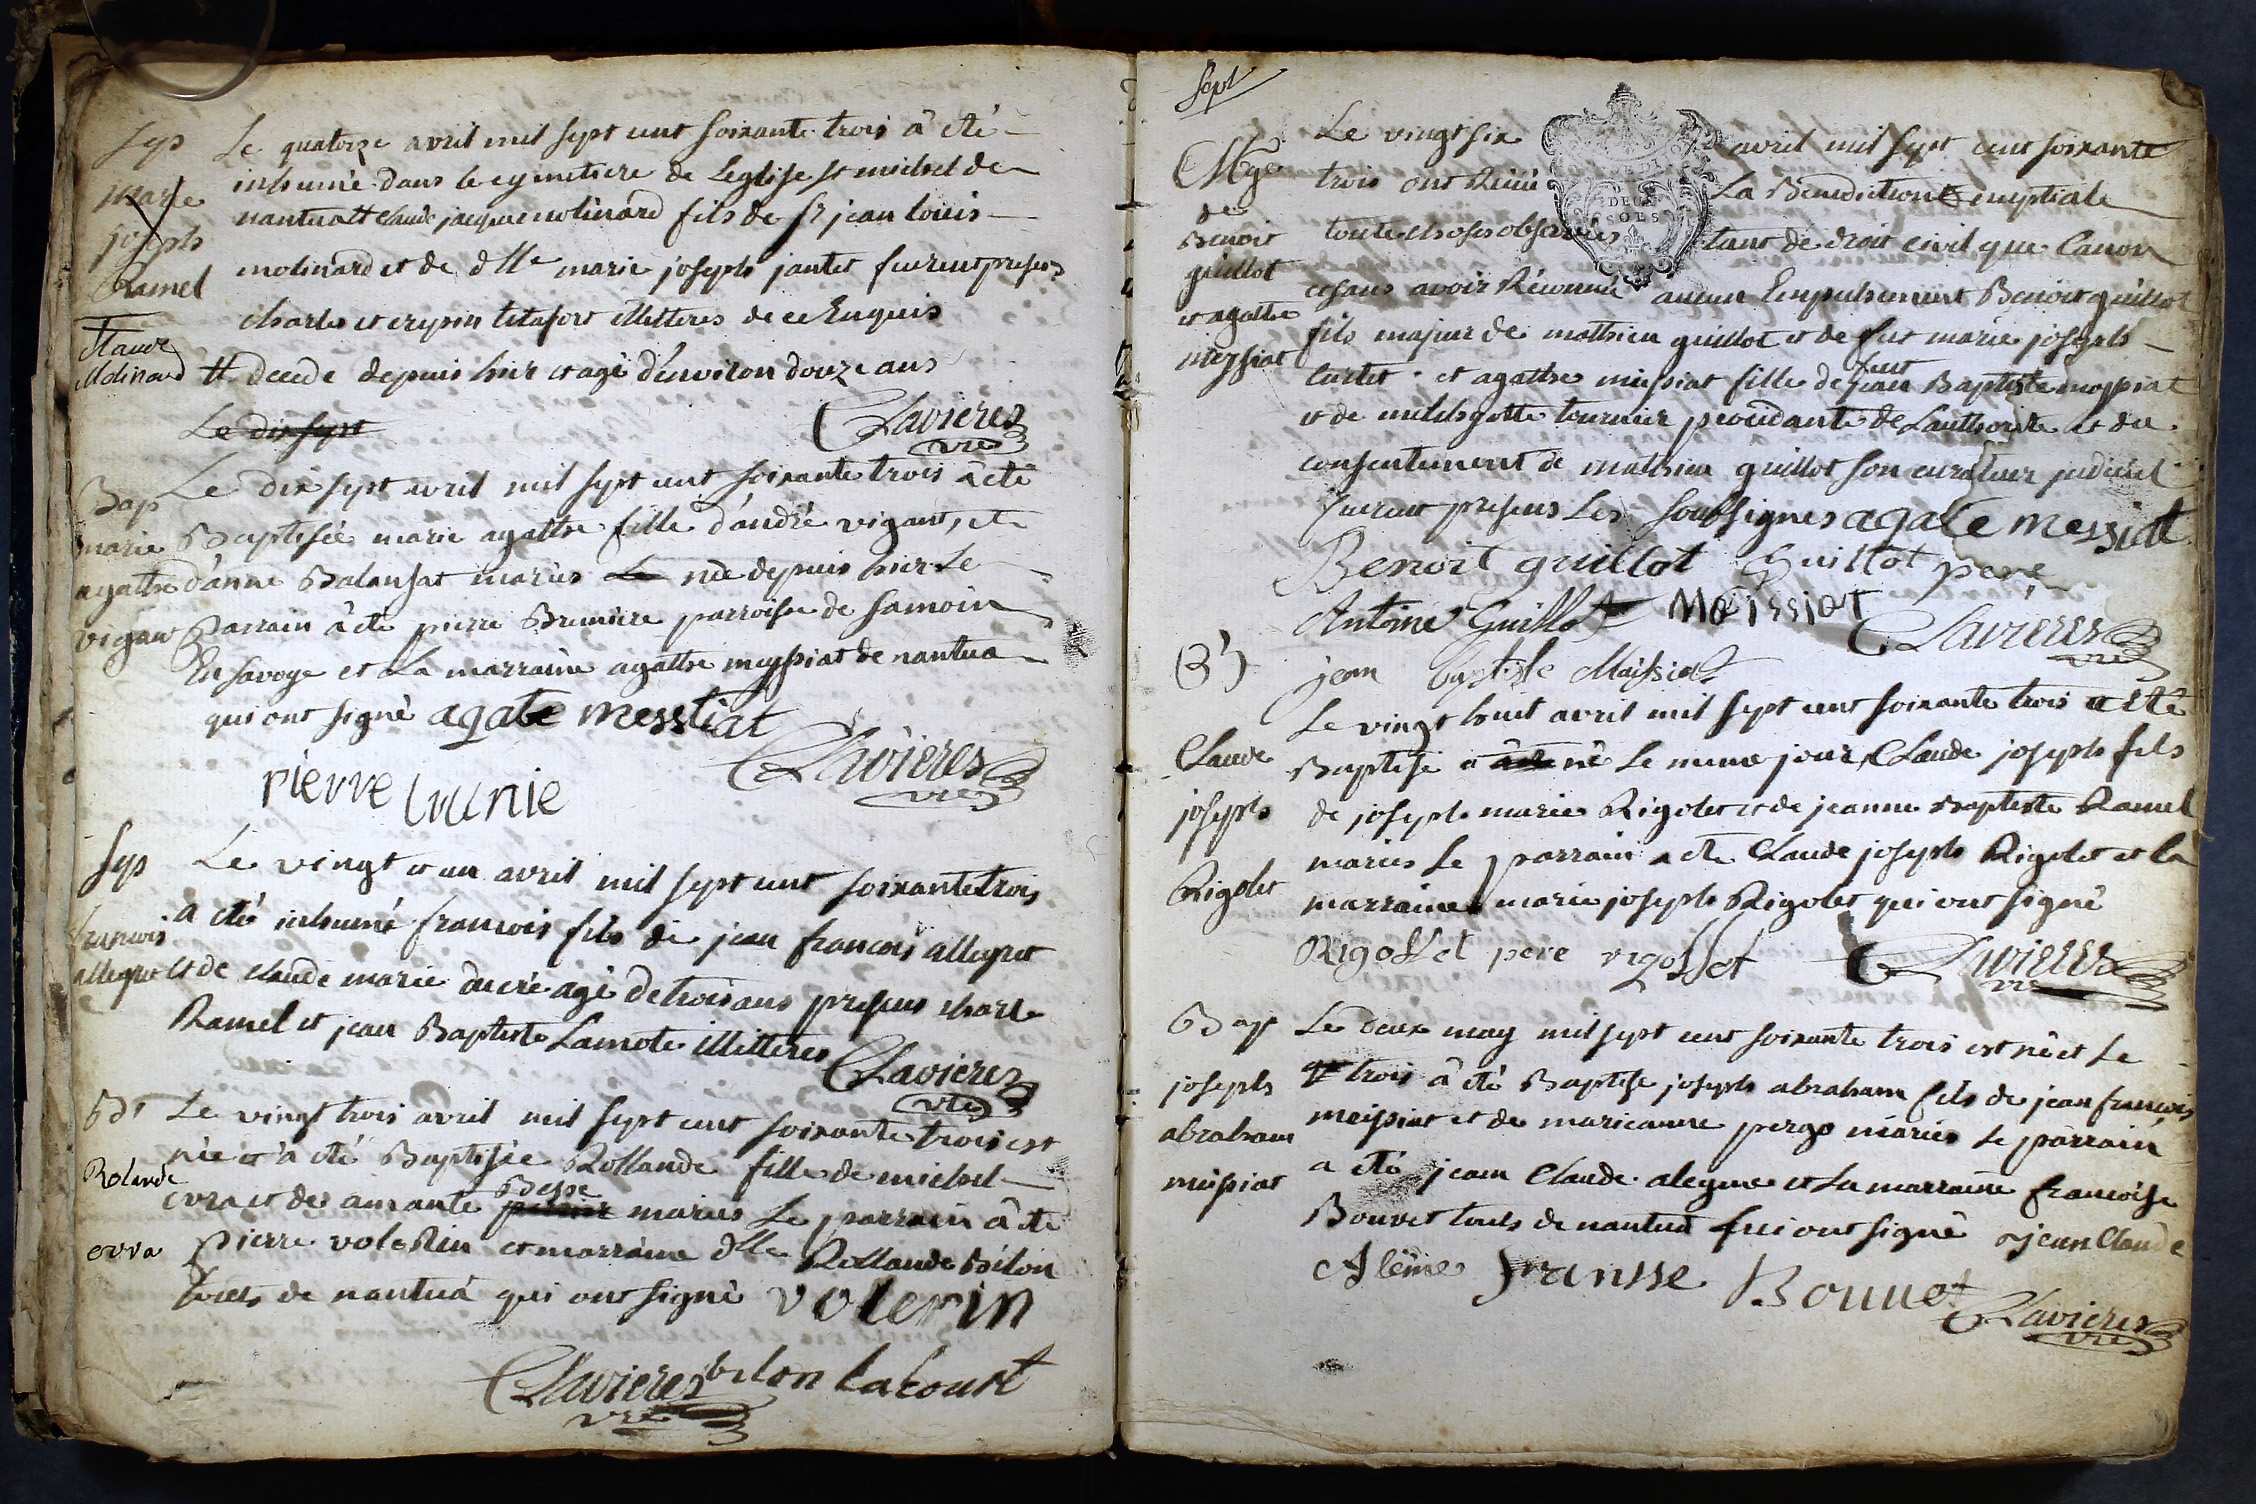 Sep
marie
joseph
Ramel
Claude
Molinard
Le quatorze avril mil sept cent soixante trois â été
inhumé dans le cymetiere de Leglise st michel de
nantua # claude jacque molinard fils de sr jean louis
molinard et de dlle marie joseph jantet furent presens
charles et crepin letafort illitteres de ce Enquis
# decede depuis hier et agé d'environ douze ans
Clavieres
vre
Le dix sept
Bap
marie
agathe
vigant
Le dix sept avril mil sept cent soixante trois a été
Baptisée marie agathe fille d'andré vigant, et
d'anne Balansat mariés Le née depuis hier Le
Parrain â été pierre Bruniere parroisse de samoin
En savoye et La marraine agathe meyssiat de nantua
qui ont signé agate messiat
Clavieres
vre
pierre brunie
Sep
francois
allegret
Le vingt et un avril mil sept cent soixante trois
a été inhumé francois fils de jean francois allegret
et de claude marie ducré agé de trois ans presens charle
Ramel et jean Baptiste Lamote illitteres
Clavieres
vre
Bap
Rolande
evra
Le vingt trois avril mil sept cent soixante trois est
née et â été Baptisée Rollande fille de michel
evra et de aimante Besse mariés Le parrain â été
pierre volerin et marraine dlle Rollande Bilon
touts de nantua qui ont signé volerin
Clavieres bilon lacourt
vre
Sept
Mge
de
Benoit
guillot
et agathe
meyssiat
Le vingt six avril mil sept cent soixante
trois ont Reçu La Benediction nuptiale
DEUX
SOLS
toute choses observées tant de droit civil que Canon
et sans avoir Reconnu aucun Empechement Benoit guillot
fils majeur de mathieu guillot et de fue marie joseph
curtet. et agathe meissiat fille de feut jean Baptiste meyssiat
et de michelotte tournier procedante de Lauthorité et du
consentement de mathieu guillot son curateur judiciel
furent presens Les soussignes agate messiat
Benoit guillot Guillot pere
Antoine Guillot Maissiat
Clavieres
vre
jean baptiste Maissiat
Bap
Claude
joseph
Rigolet
Le vingt huit avril mil sept cent soixante trois a été
Baptisé et né Le meme jour, Claude joseph fils
de joseph marie Rigolet et de jeanne Baptiste Ramel
mariés Le parrain a été Claude joseph Rigolet et la
marraine marie joseph Rigolet qui ont signé
Rigollet pere rigollet Clavieres
vre
Bap
joseph
abraham
meissiat
Le deux may mil sept cent soixante trois est né et Le
trois â été Baptisé joseph abraham fils de jean francois
meissiat et de marie anne pergo mariés Le parrain
a été jean Claude alegme et La marraine francoise
Bouvet touts de nantua qui ont signé jean Claude
Aleme franse Bouuet
Clavieres
vre